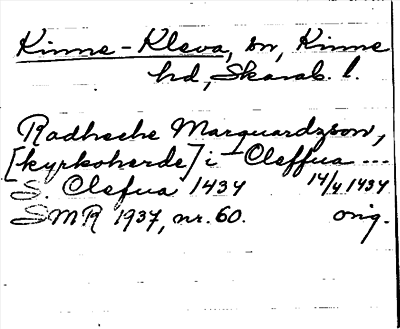 Kinne-Kleva, sn, Kinne
hd, Skarab. l.
Radheche Marquardzson,
[kyrkoherde] i Cleffua ...
S. Clefua 1434 14/4 1434
SMR 1937, nr. 60. orig.